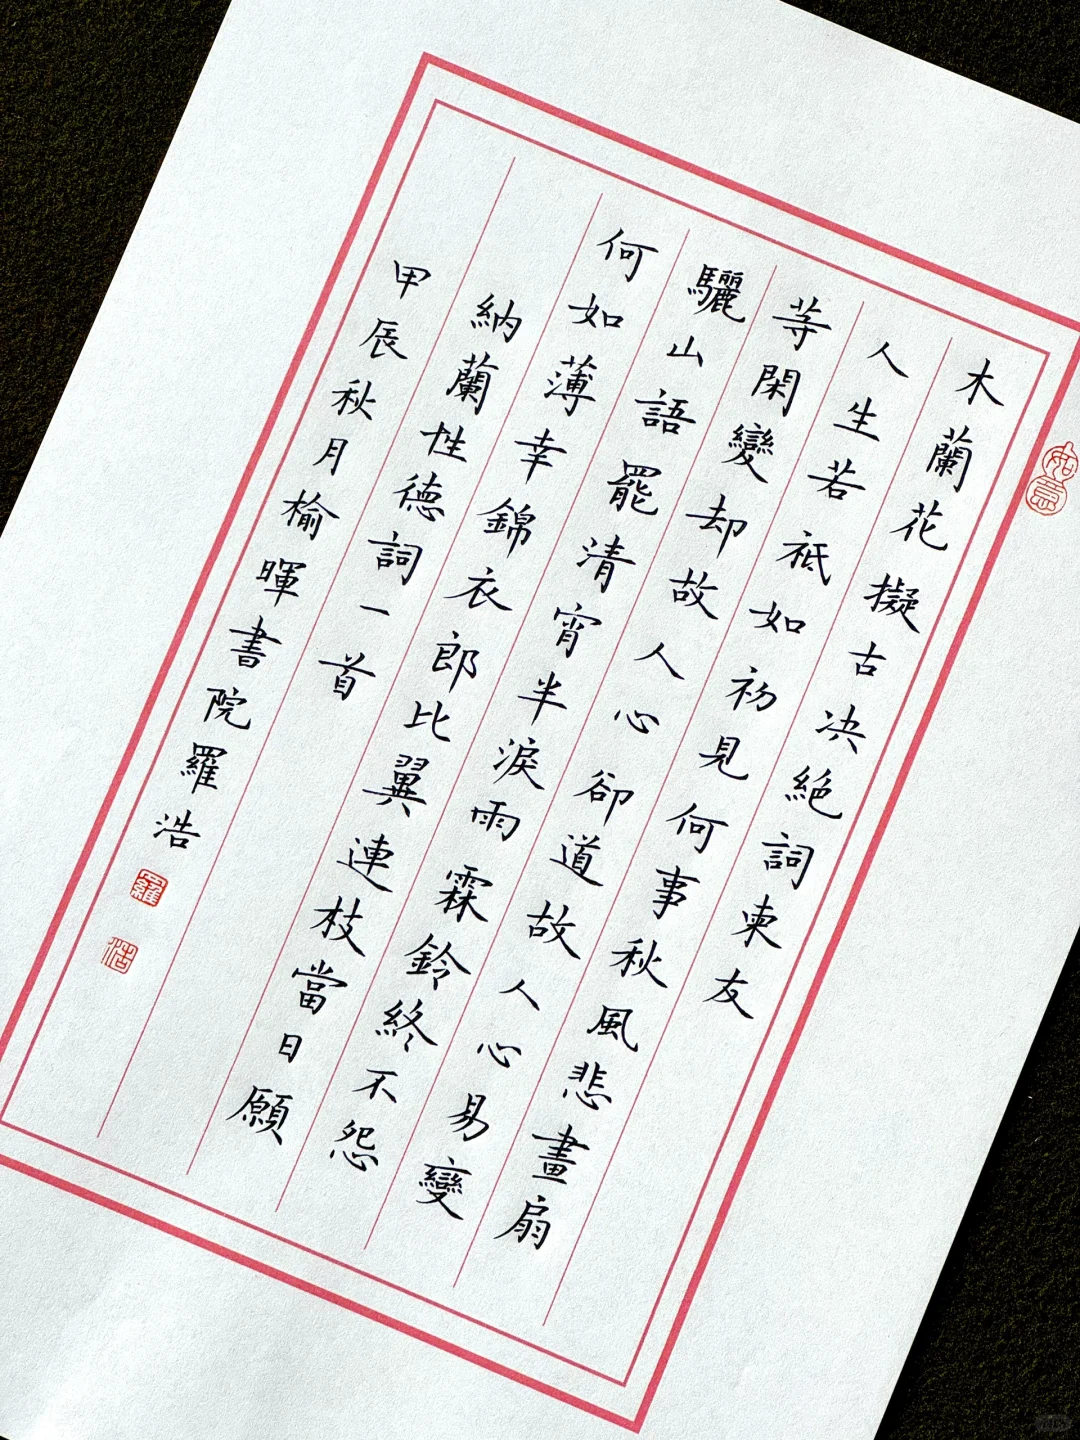 木蘭花擬古决絕詞柬友
人生若祗如初見何事秋風悲畫扇
等閑變却故人心卻道故人心易變
驪山語罷清宵半淚雨霖鈴終不怨
何如薄幸錦衣郎比翼連枝當日願
納蘭性德詞一首
甲辰秋月榆暉書院羅浩
如意
羅
浩